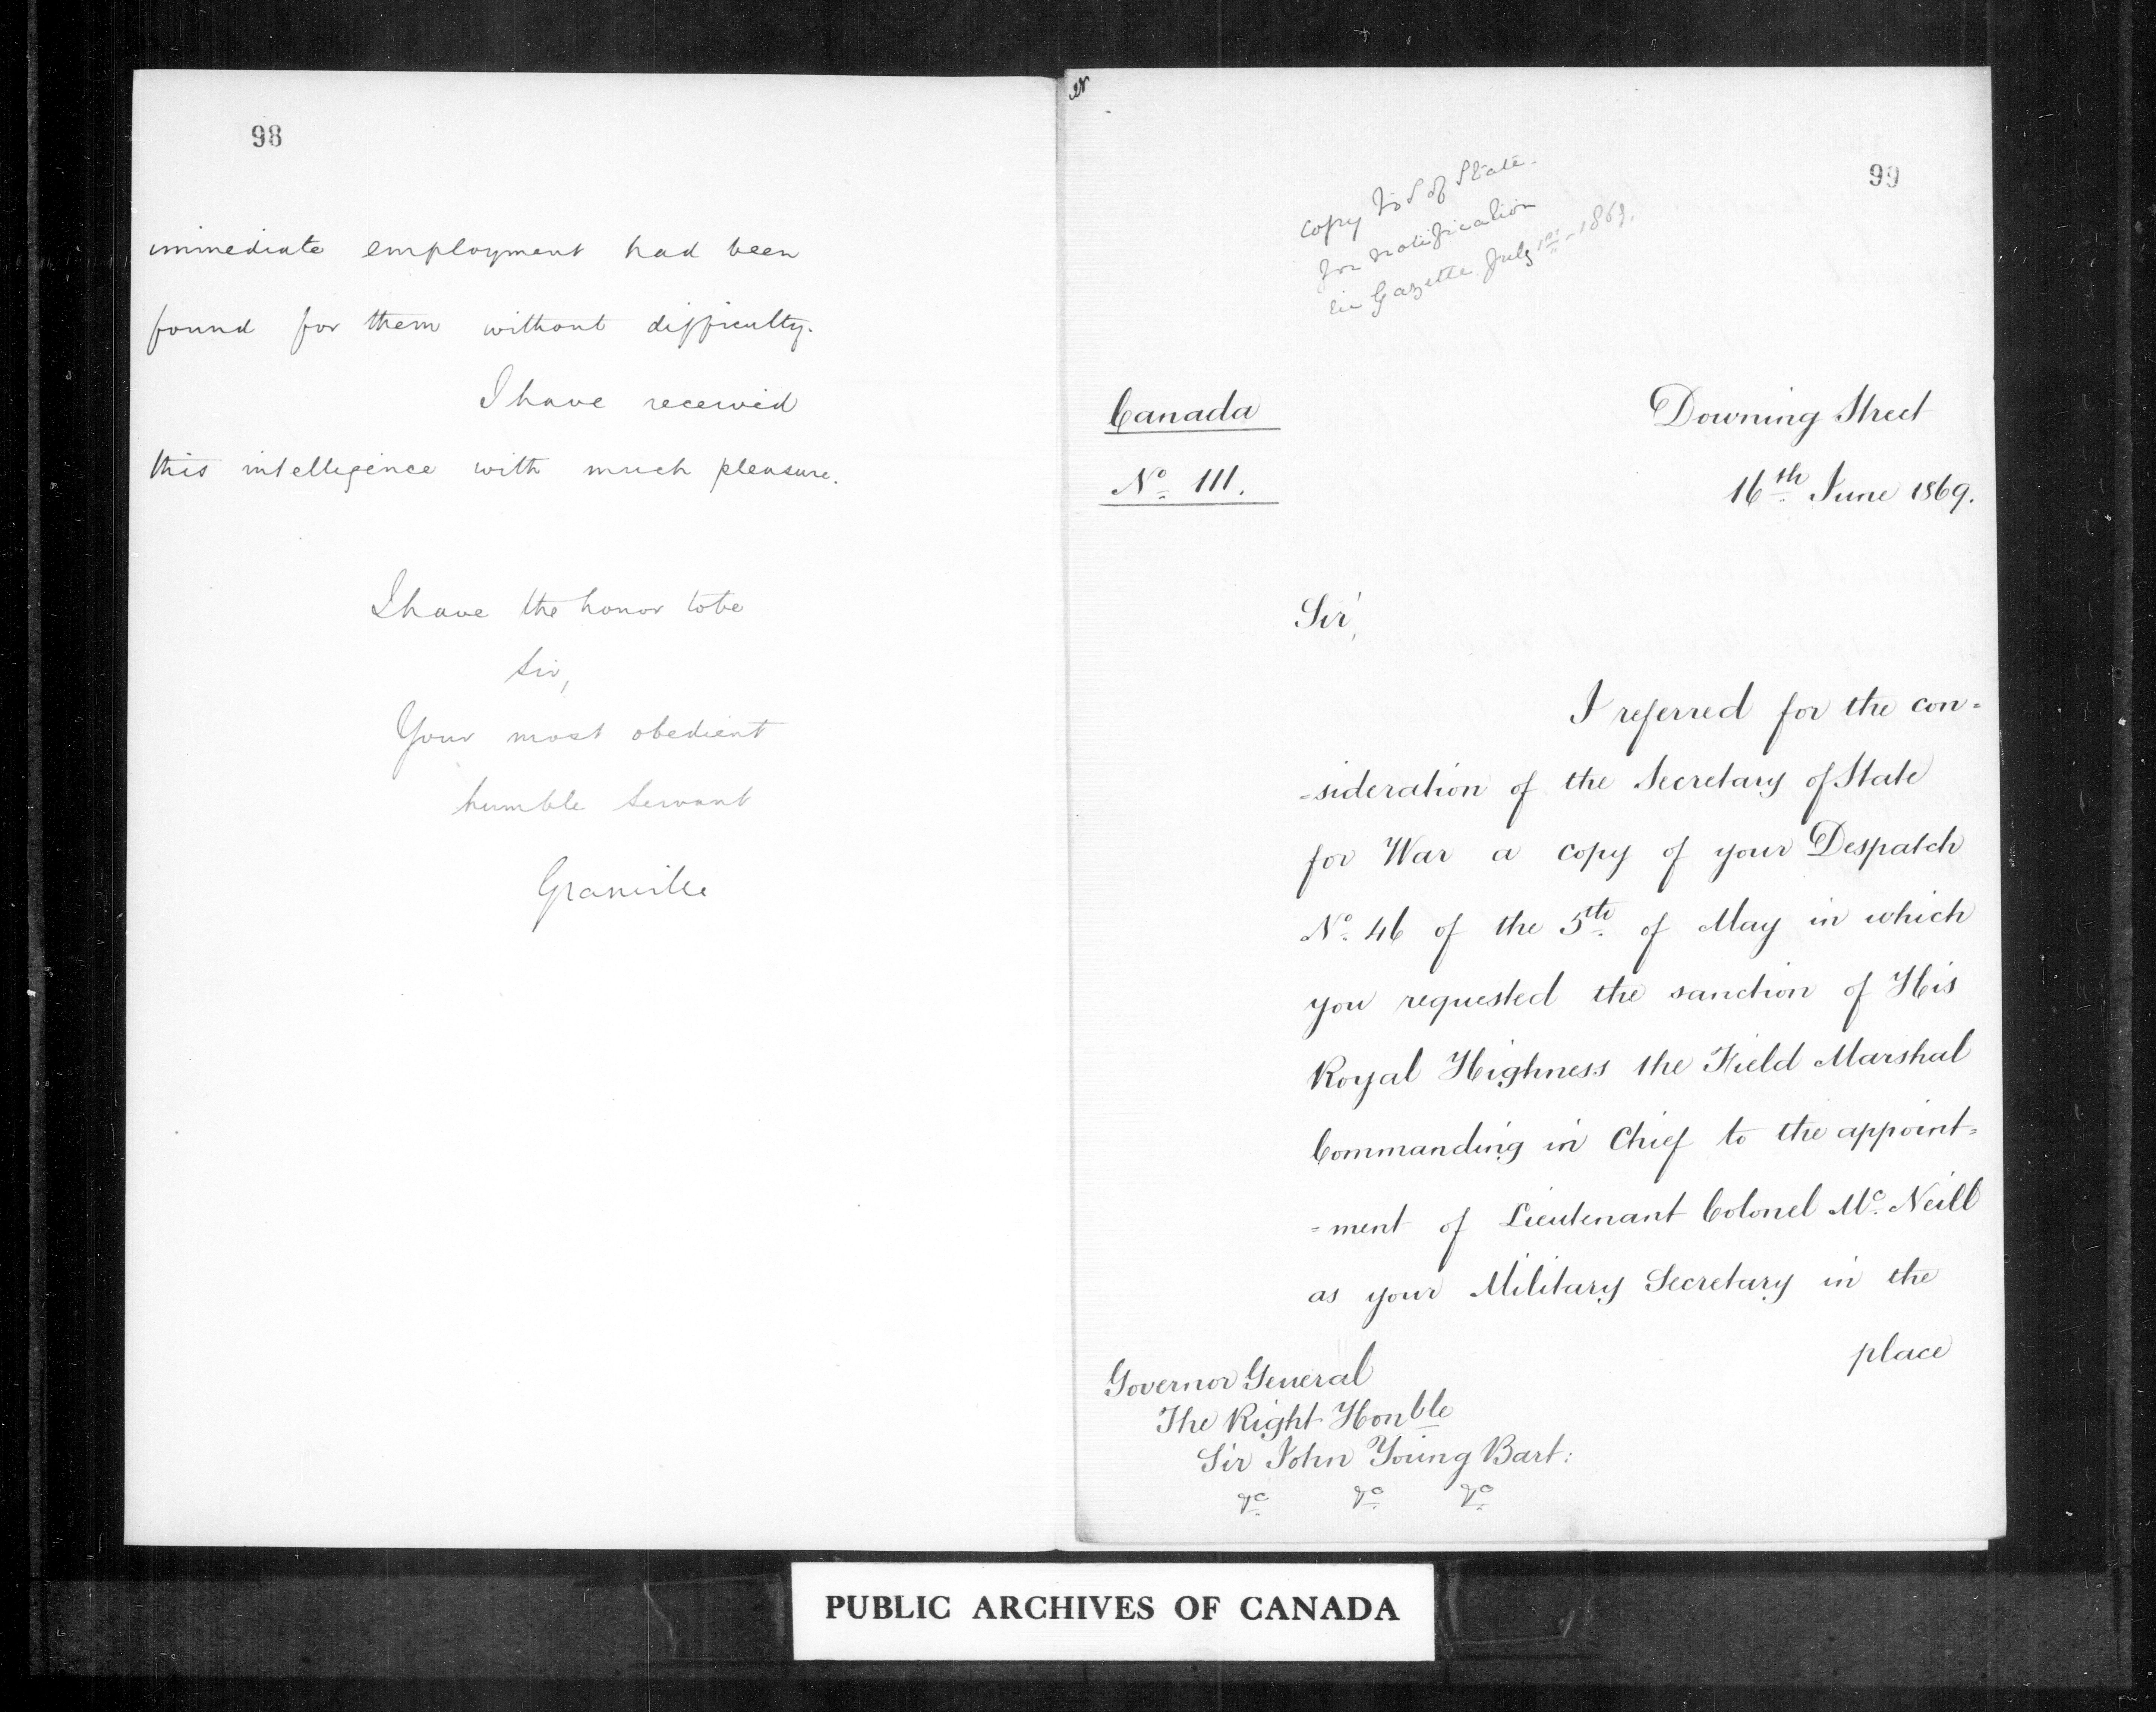 98
immediate employment had been
found for them without difficulty.
I have received
this intelligence with much pleasure.
I have the honor to be
Sir,
Your most obedient
humble Servant
Granville
99
Copy to S of State
for notification
in Gazette July 1st - 1869.
Canada
No. 111.
Downing Street
16th June 1869.
Sir,
I referred for the con=
=sideration of the Secretary of State
for War a copy of your Despatch
No. 46 of the 5th of May in which
you requested the sanction of His
Royal Highness the Field Marshal
Commanding in Chief to the appoint=
=ment of Lieutenant Colonel Mc. Neill
as your Military Secretary in the
place
Governor General
The Right Honble
Sir John Young Bart:
&c &c &c
PUBLIC ARCHIVES OF CANADA